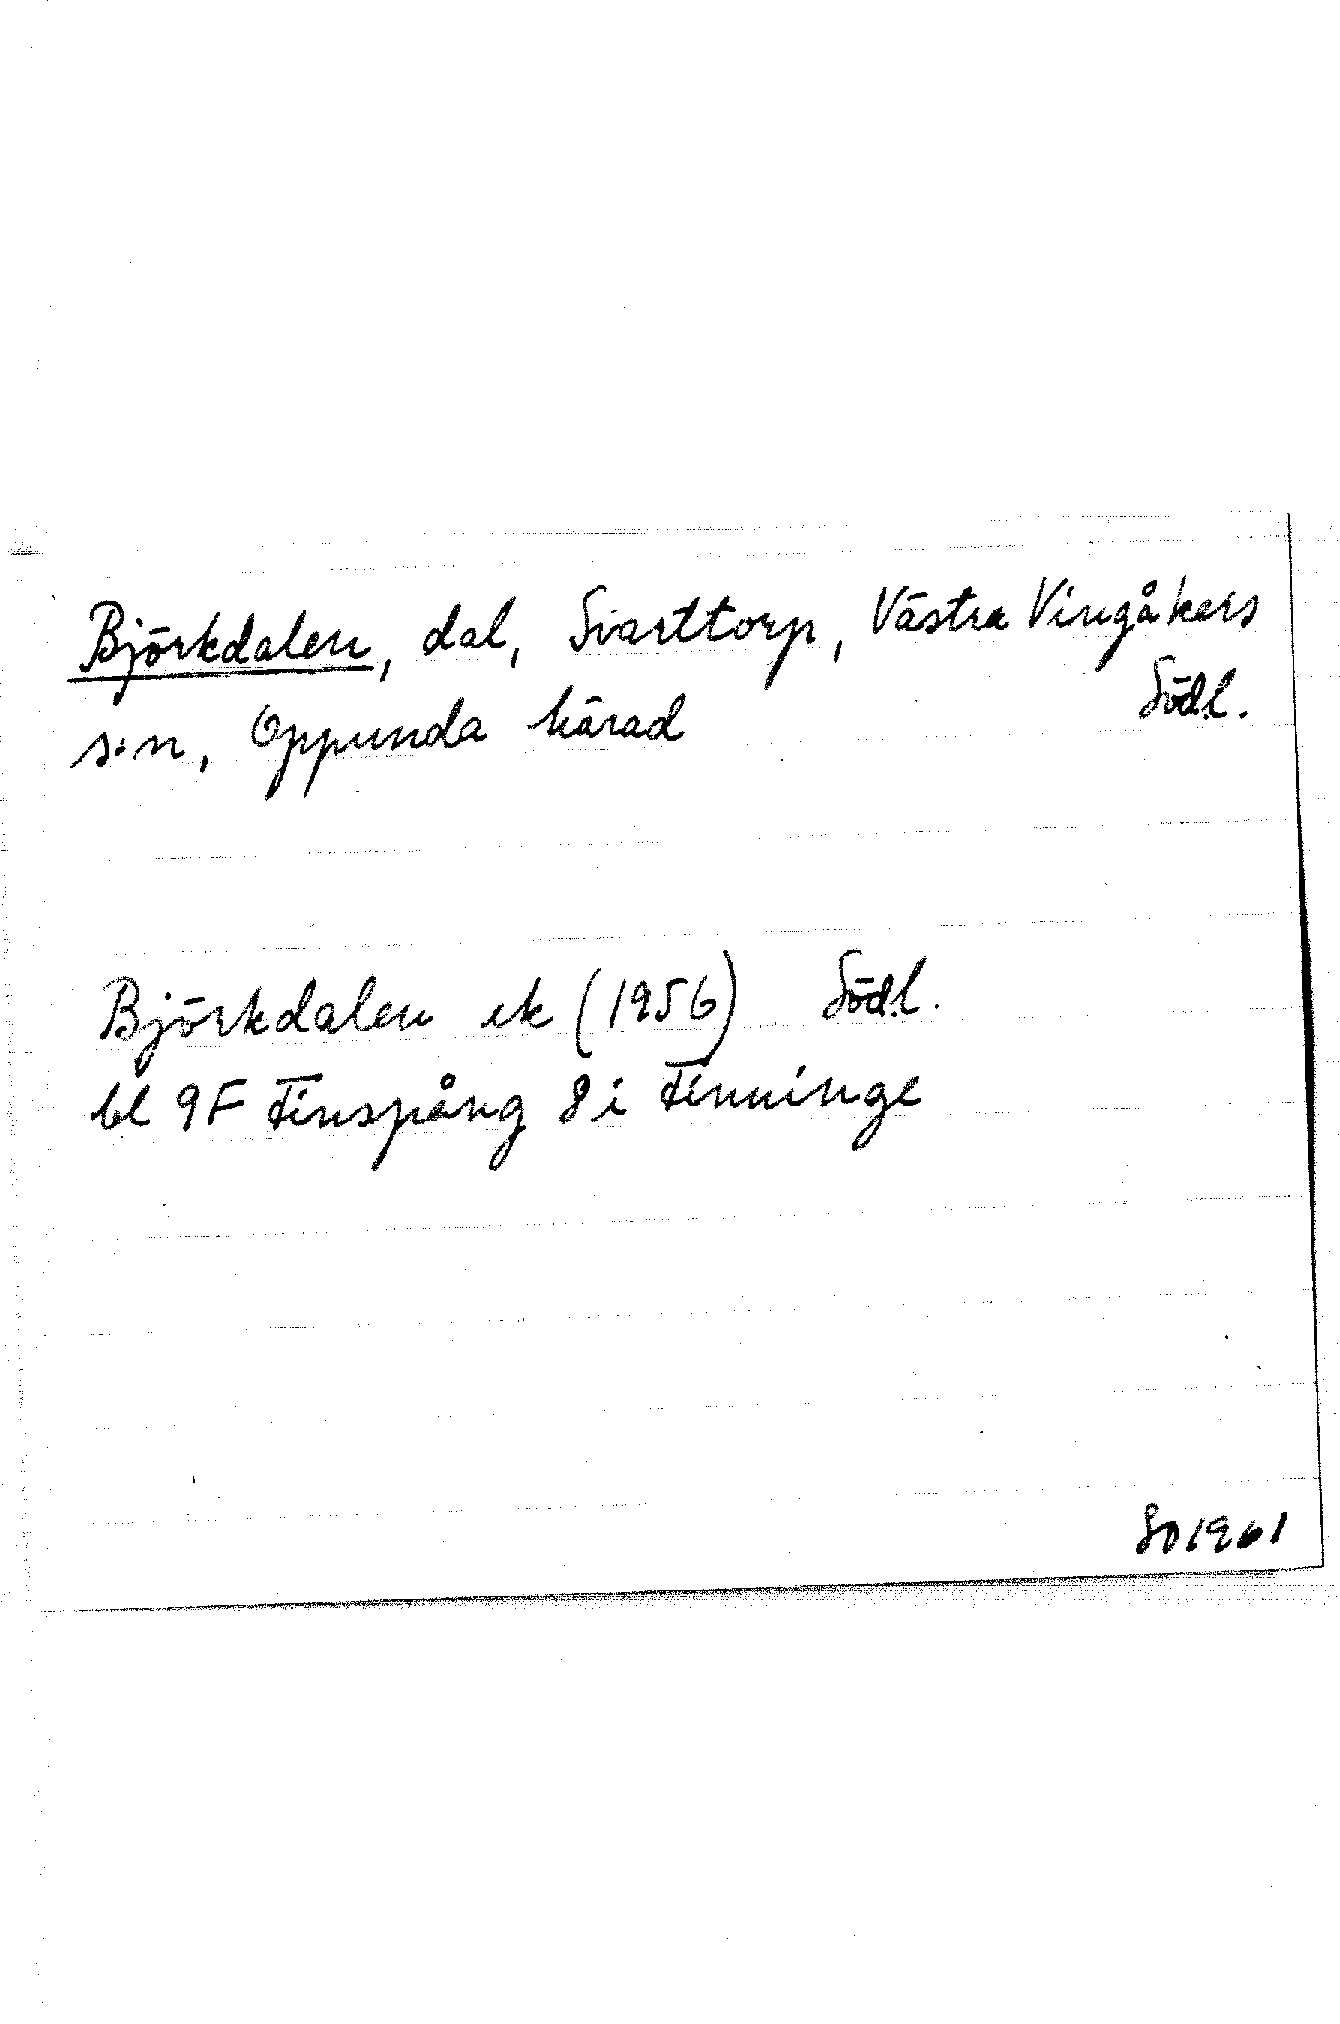 Björkdalen, dal, Svarttorp, Västra Vingåkers
s:n, Oppunda härad Södl.
Björkdalen ek (1956) Södl.
bl 9F Finspång 8 i Finninge
SO 1961